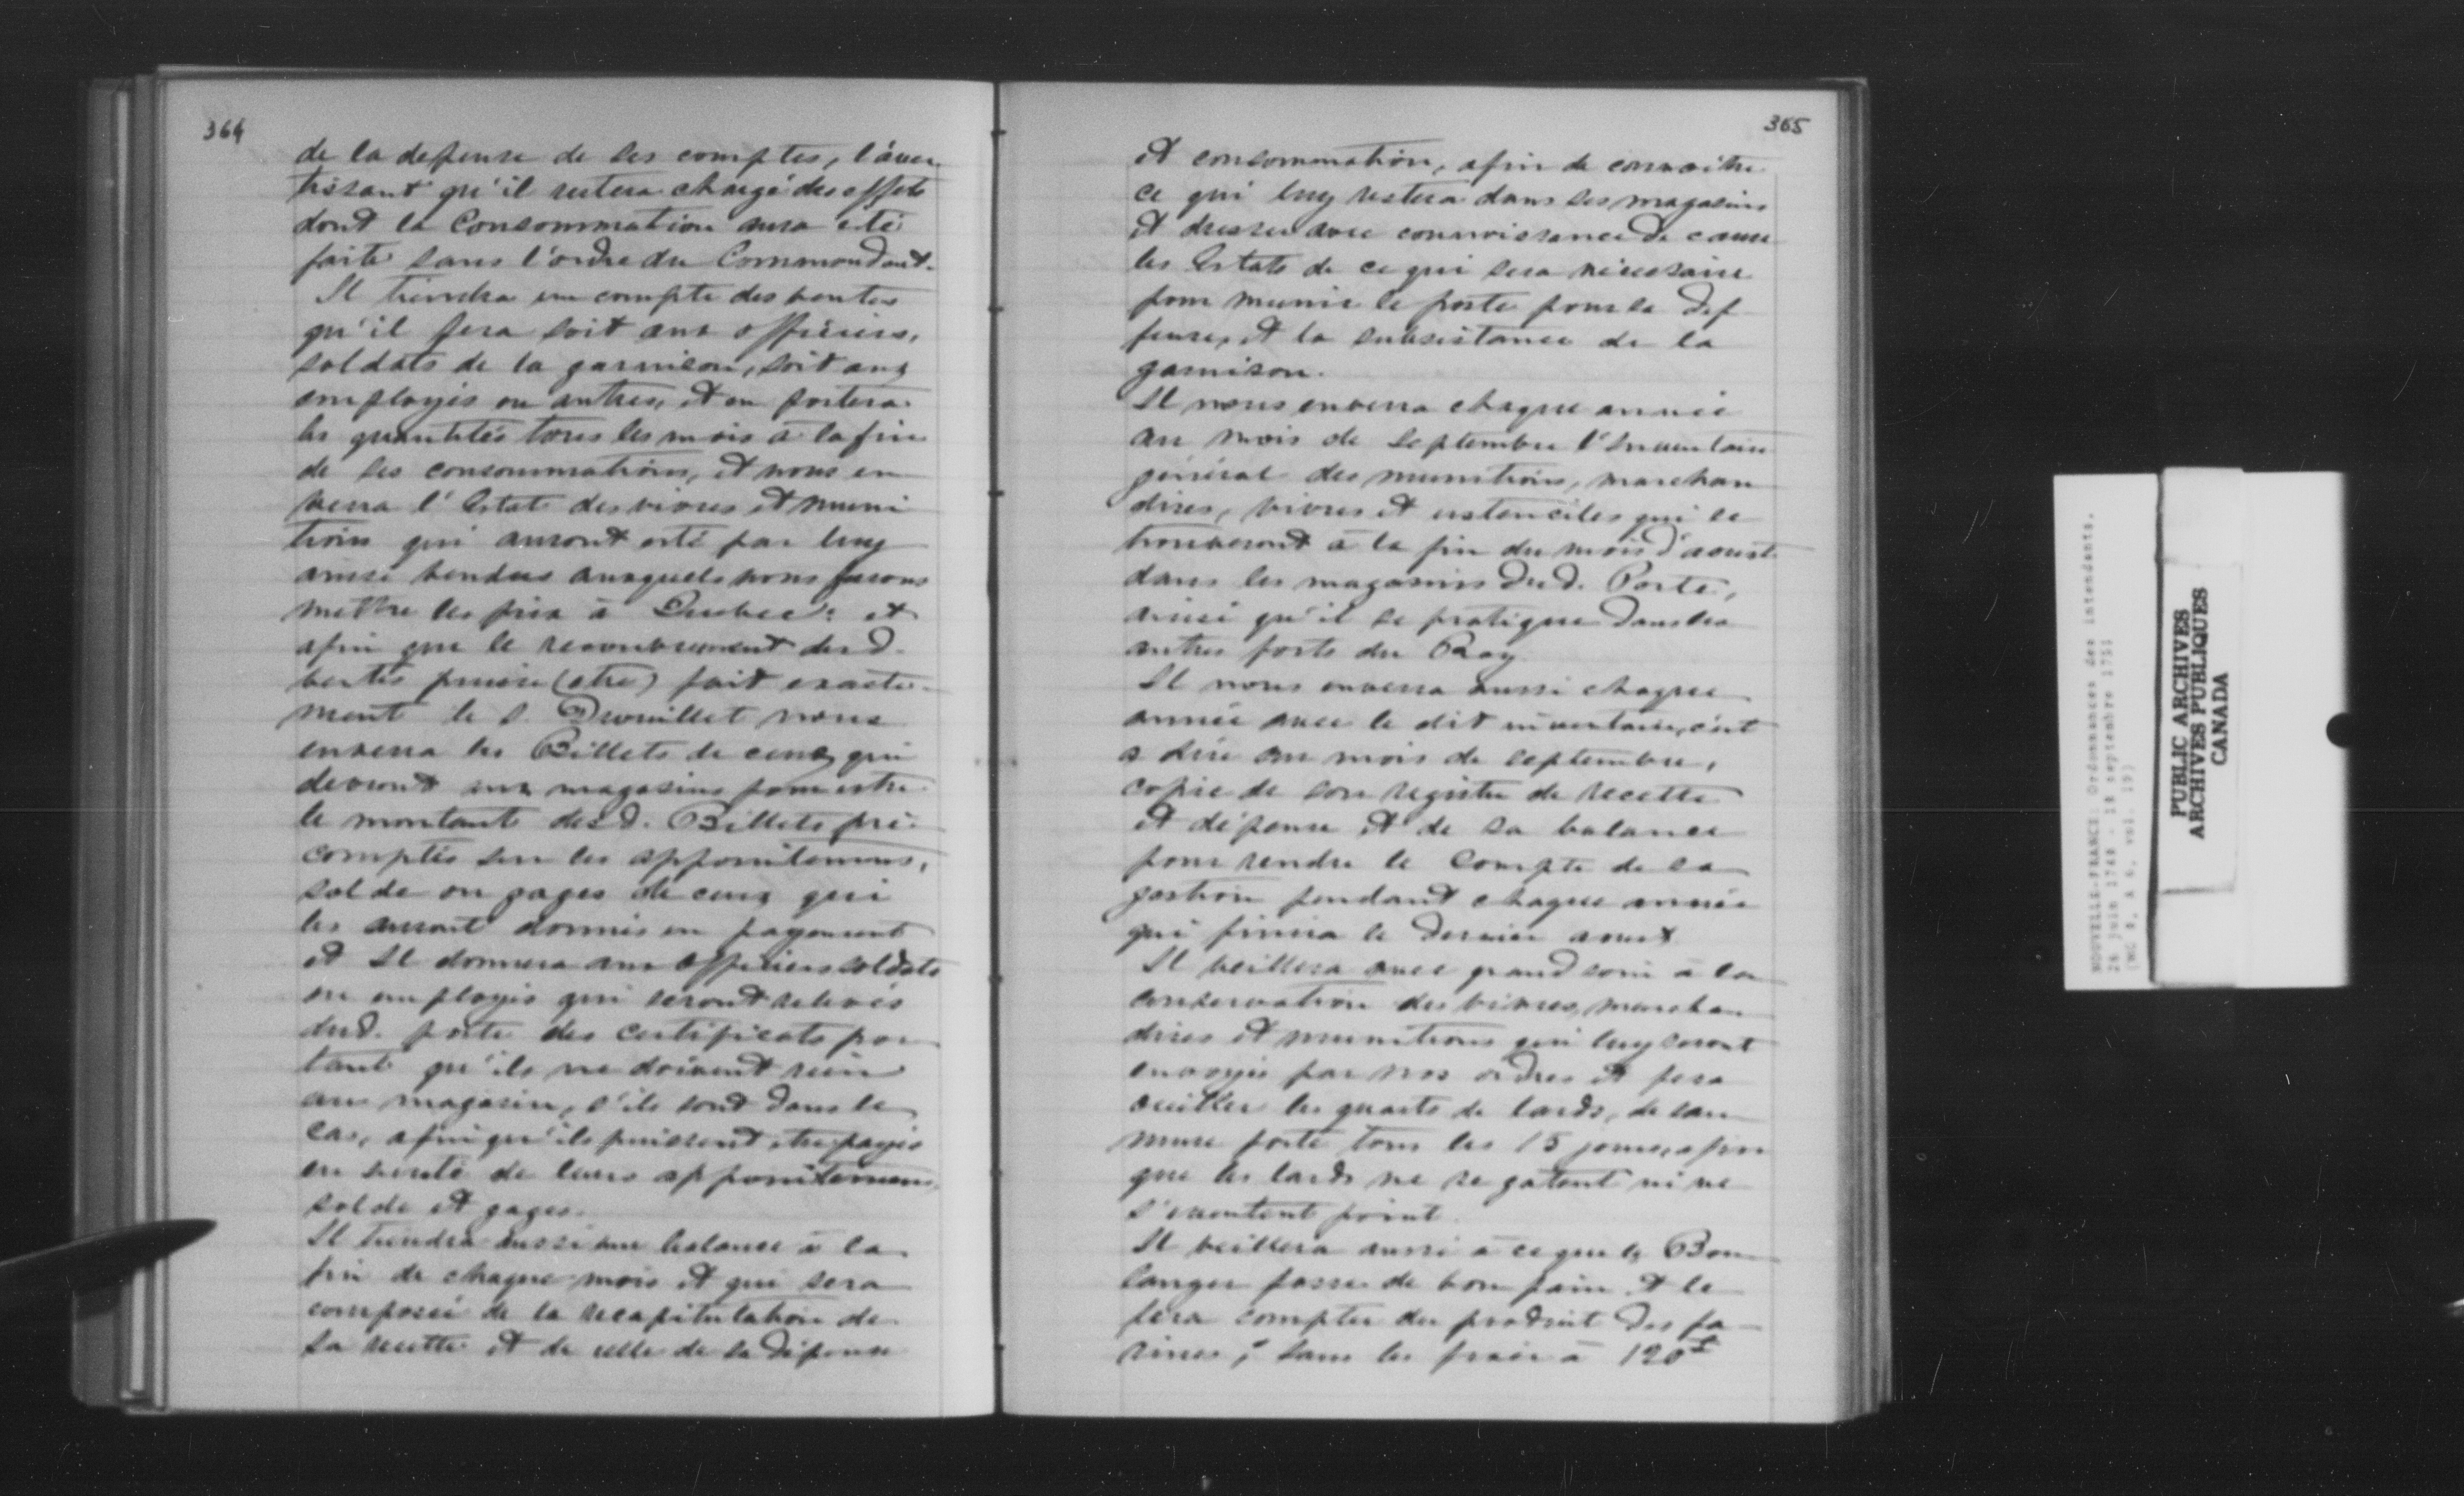 364
de la depense de ses comptes, l'aver
tissant qu'il restera chargé des effets
dont la Consommation aura été
faite sans l'ordre du Commandant.
Il tiendra un compte des ventes
qu'il fera soit aux officiers,
soldats de la garnison, soit aux
employés ou autres, et en portera
les quantités tous les mois à la fin
de ses consommations, et nous en
verra l'Estat des vivres et muni
tions qui auront esté par luy
ainsi vendus auxquels nous ferons
mettre les prix à Quebec: et
afin que le recouvrement desd.
ventes puisse (etre) fait exacte-
ment le s. Drouillet nous
enverra les Billets de ceux qui
devront aux magasins pour estre
le montant desd. Billets pré
comptés sur les appointemens,
solde ou gages de ceux qui
les auront donnés en payement
et Il donnera aux officiers soldats
ou employés qui seront relevés
dud. poste des certificats por
tant qu'ils ne doivent rien
au magasin, s'ils sont dans le
cas, afin qu'ils puissent etre payés
en sureté de leurs appointemens,
solde et gages.
Il tiendra aussi une balance à la
fin de chaque mois et qui sera
composée de la recapitulation de
sa recette et de celle de sa dépense
365
et consommation, afin de connoitre
ce qui luy restera dans ses magasins
et dresser avec connoissance de cause
les Estats de ce qui sera nécessaire
pour munir le poste pour sa def
fense, et la subsistance de la
garnison.
Il nous enverra chaque année
au mois de septembre l'Inventaire
général des munitions, marchan
dises, vivres et ustenciles qui se
trouveront à la fin du mois d'aoust
dans les magasins dud. Poste,
ainsi qu'il se pratique dans les
autres forts du Roy
Il nous enverra aussi chaque
année avec le dit inventaire, c'est
a dire au mois de septembre,
copie de son registre de recette
et dépense et de sa balance
pour rendre le compte de sa
gestion pendant chaque année
qui finira le dernier aoust
Il veillera avec grand soin à la
conservation des vivres, marchan
dises et munitions qui luy seront
envoyés par nos ordres et fera
ouiller les quarts de lards, de sau
mure forte tous les 15 jours, afin
que les lards ne se gatent ni ne
s'éventent point.
Il veillera aussi à ce que le Bou
langer fasse de bon pain et le
fera compter du produit des fa
rines, sans les frais à 120
NOUVELLE-FRANCE: Ordonnances des intendants.
26 juin 1748 - 18 septembre 1751
(MG 8, A 6, vol. 19)
PUBLIC ARCHIVES
ARCHIVES PUBLIQUES
CANADA